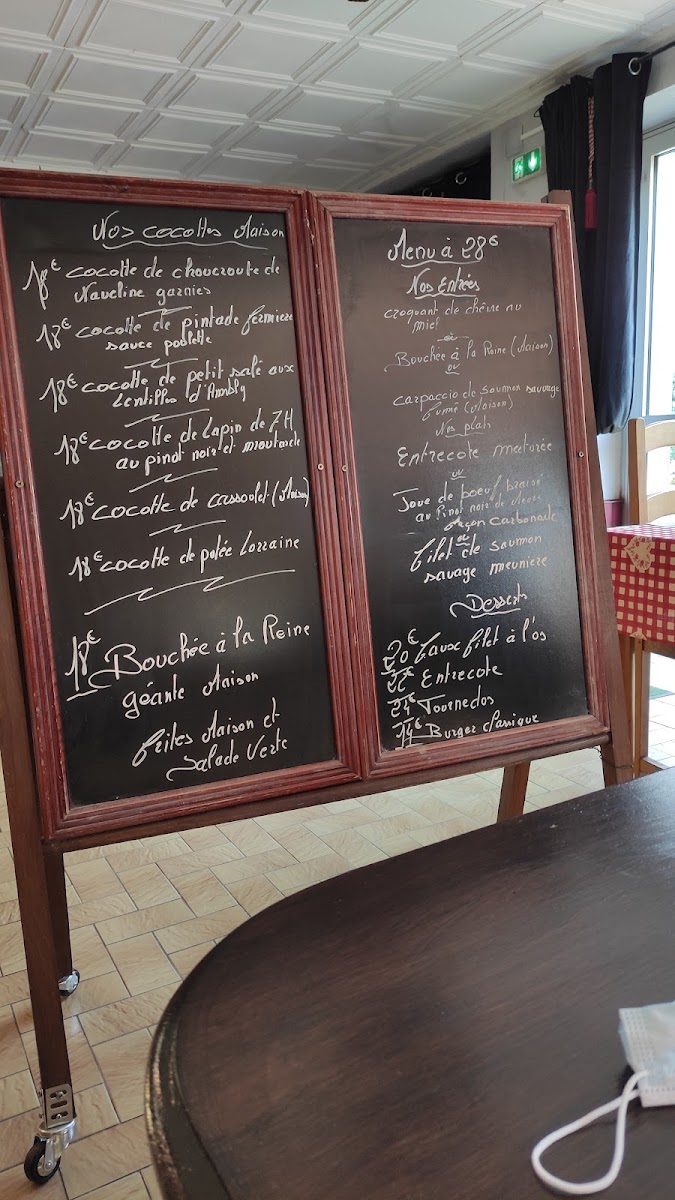 Nos cocottes Maison
18€ cocotte de choucroute de
Naveline garnies
18€ cocotte de pintade fermiere
sauce poulette
18€ cocotte de petit salé aux
Lentilles d'Ambly
18€ cocotte de Lapin de 7H
au pinot noir et moutarde
18€ cocotte de cassoulet (Maison)
18€ cocotte de potée Lorraine
18€ Bouchée à la Reine
géante Maison
frites Maison et
Salade Verte
Menu à 28€
Nos Entrées
croquant de chèvre au
miel
ou
Bouchée à la Reine (Maison)
ou
carpaccio de saumon sauvage
fumé (Maison)
Nos plats
Entrecote maturée
ou
Joue de boeuf braisé
au Pinot noir de
façon carbonade
ou
filet de saumon
savage meuniere
Desserts
20€ faux filet à l'os
22€ Entrecote
24€ Tournedos
14€ Burger classique